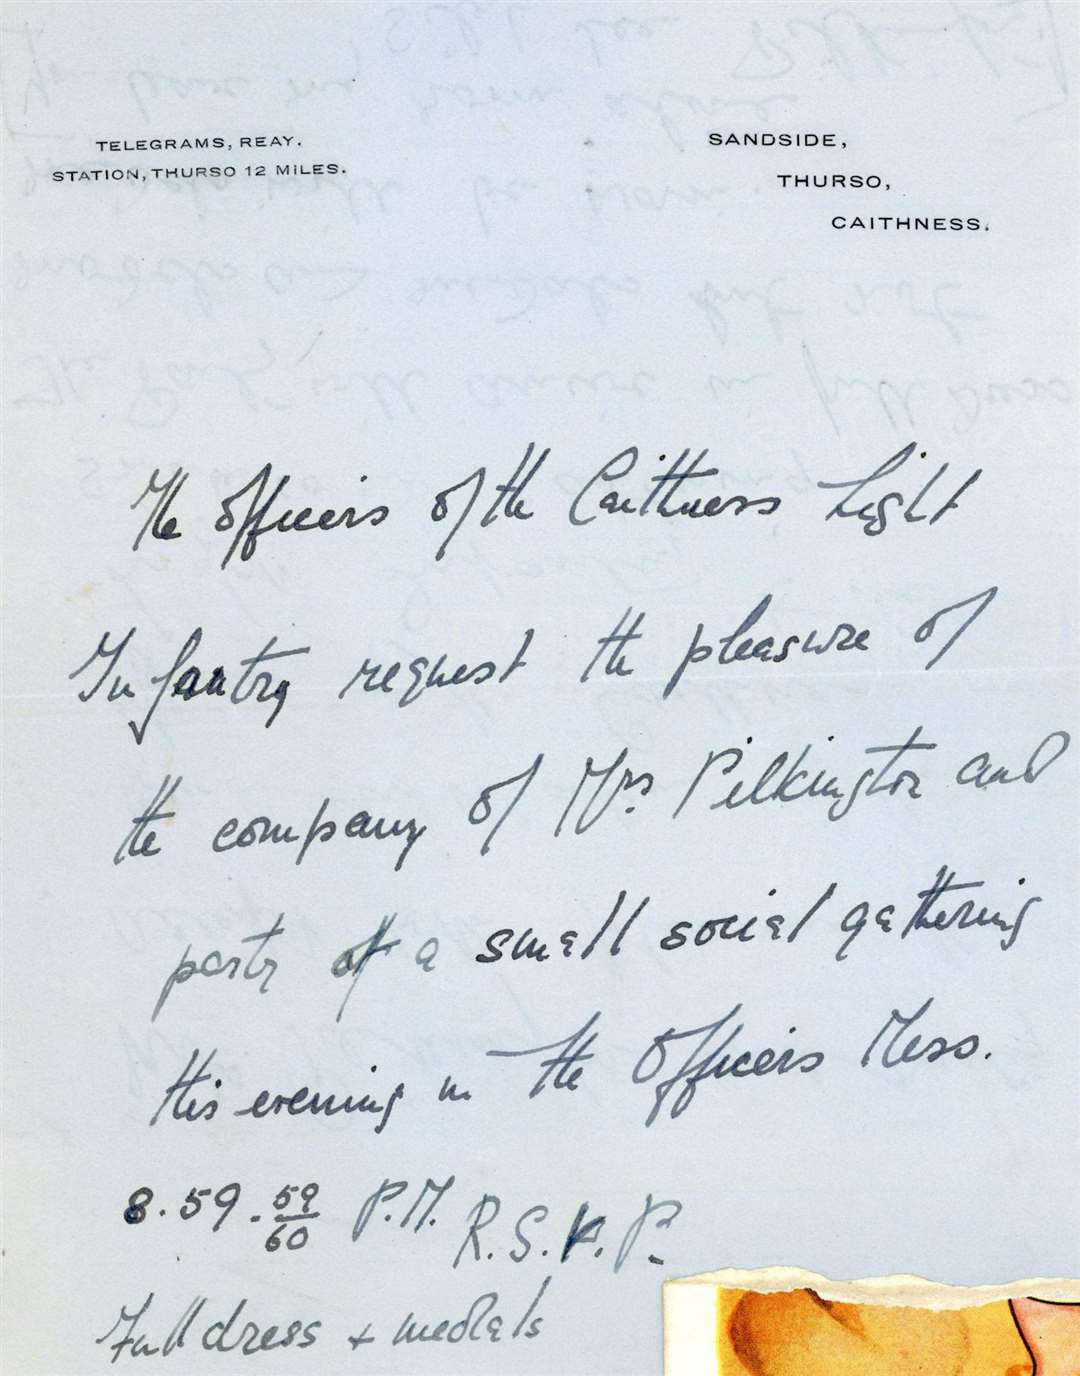 TELEGRAMS, REAY.
STATION, THURSO 12 MILES.
SANDSIDE,
THURSO,
CAITHNESS.
The Officers of the Caithness Light
Infantry request the pleasure of
the company of Mrs. Pilkington and
party at a small social gathering
this evening in the Officers Mess.
8.59.59/60 P.M. R.S.V.P.
Full dress + medals